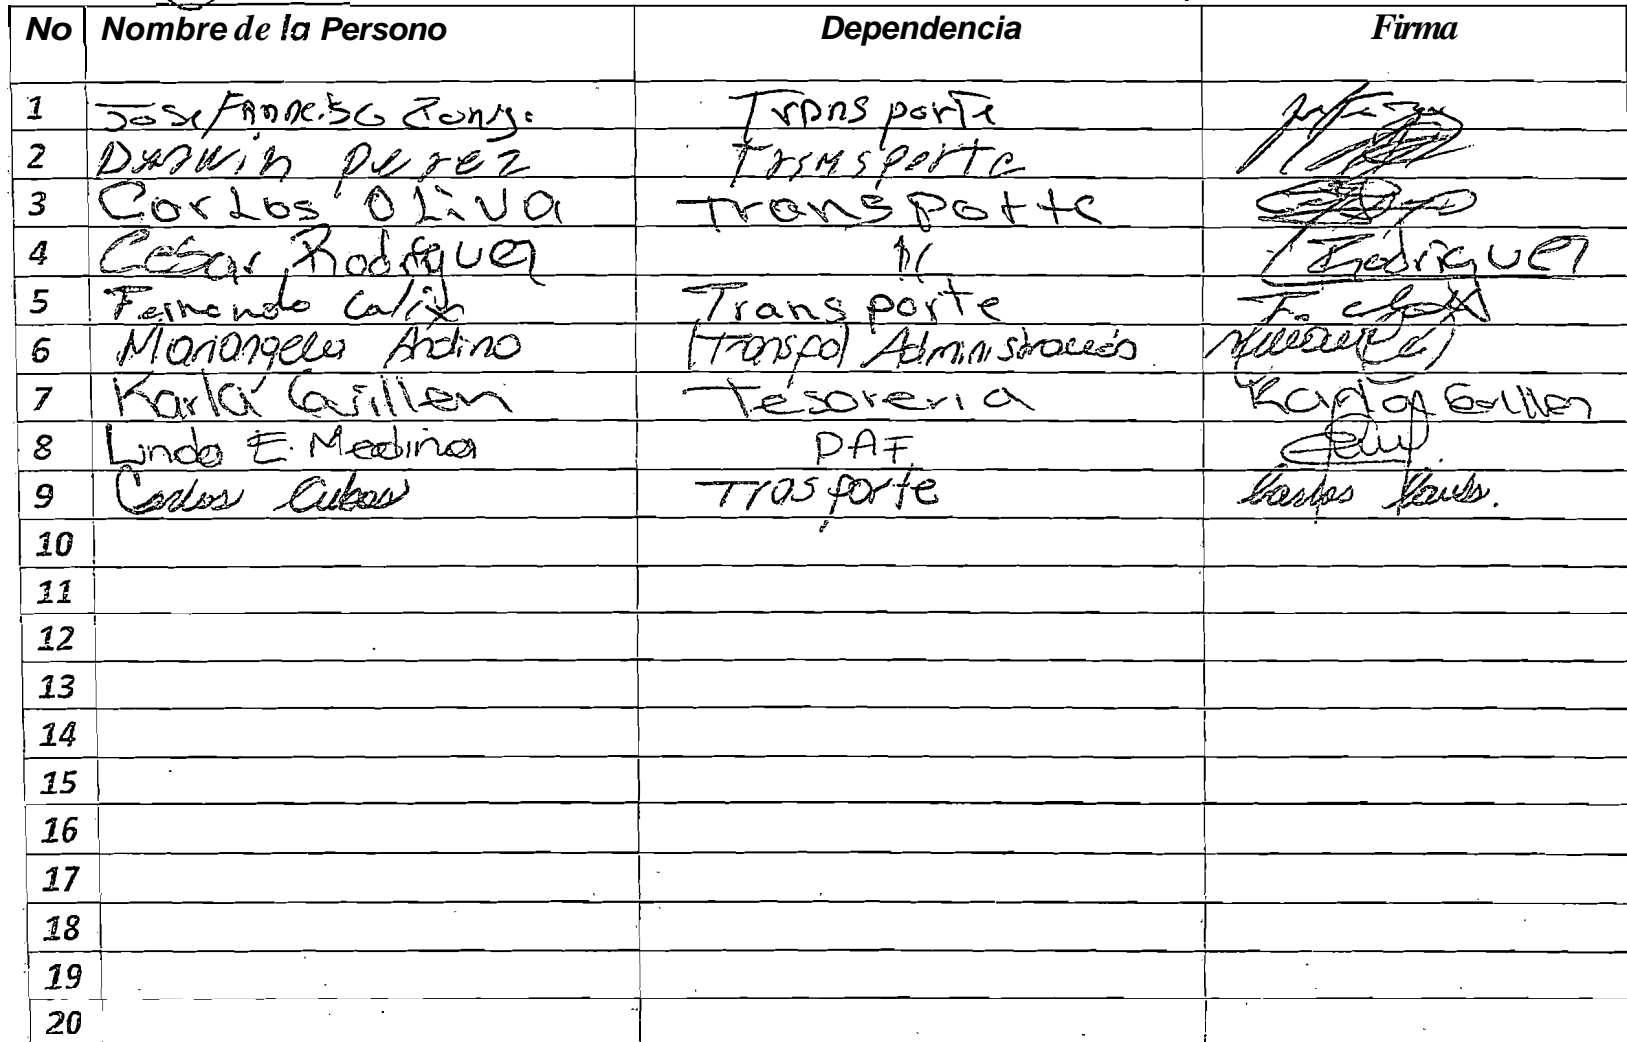 No Nombre de la Persono Dependencia Firma
1 Jose Francisco Transporte
2 Darwin perez Transporte
3 Carlos OLiVa Transporte
4 Cesar Rodriguez 11 Rodriguez
5 Fernando Calix Transporte F.
6 Mariangela Andino (Transpo) Administración
7 Karla Guillen Tesoreria Karla Guillen
8 Linda E. Medina DAF
9 Carlos Cubas Trasporte Carlos
10
11
12
13
14
15
16
17
18
19
20